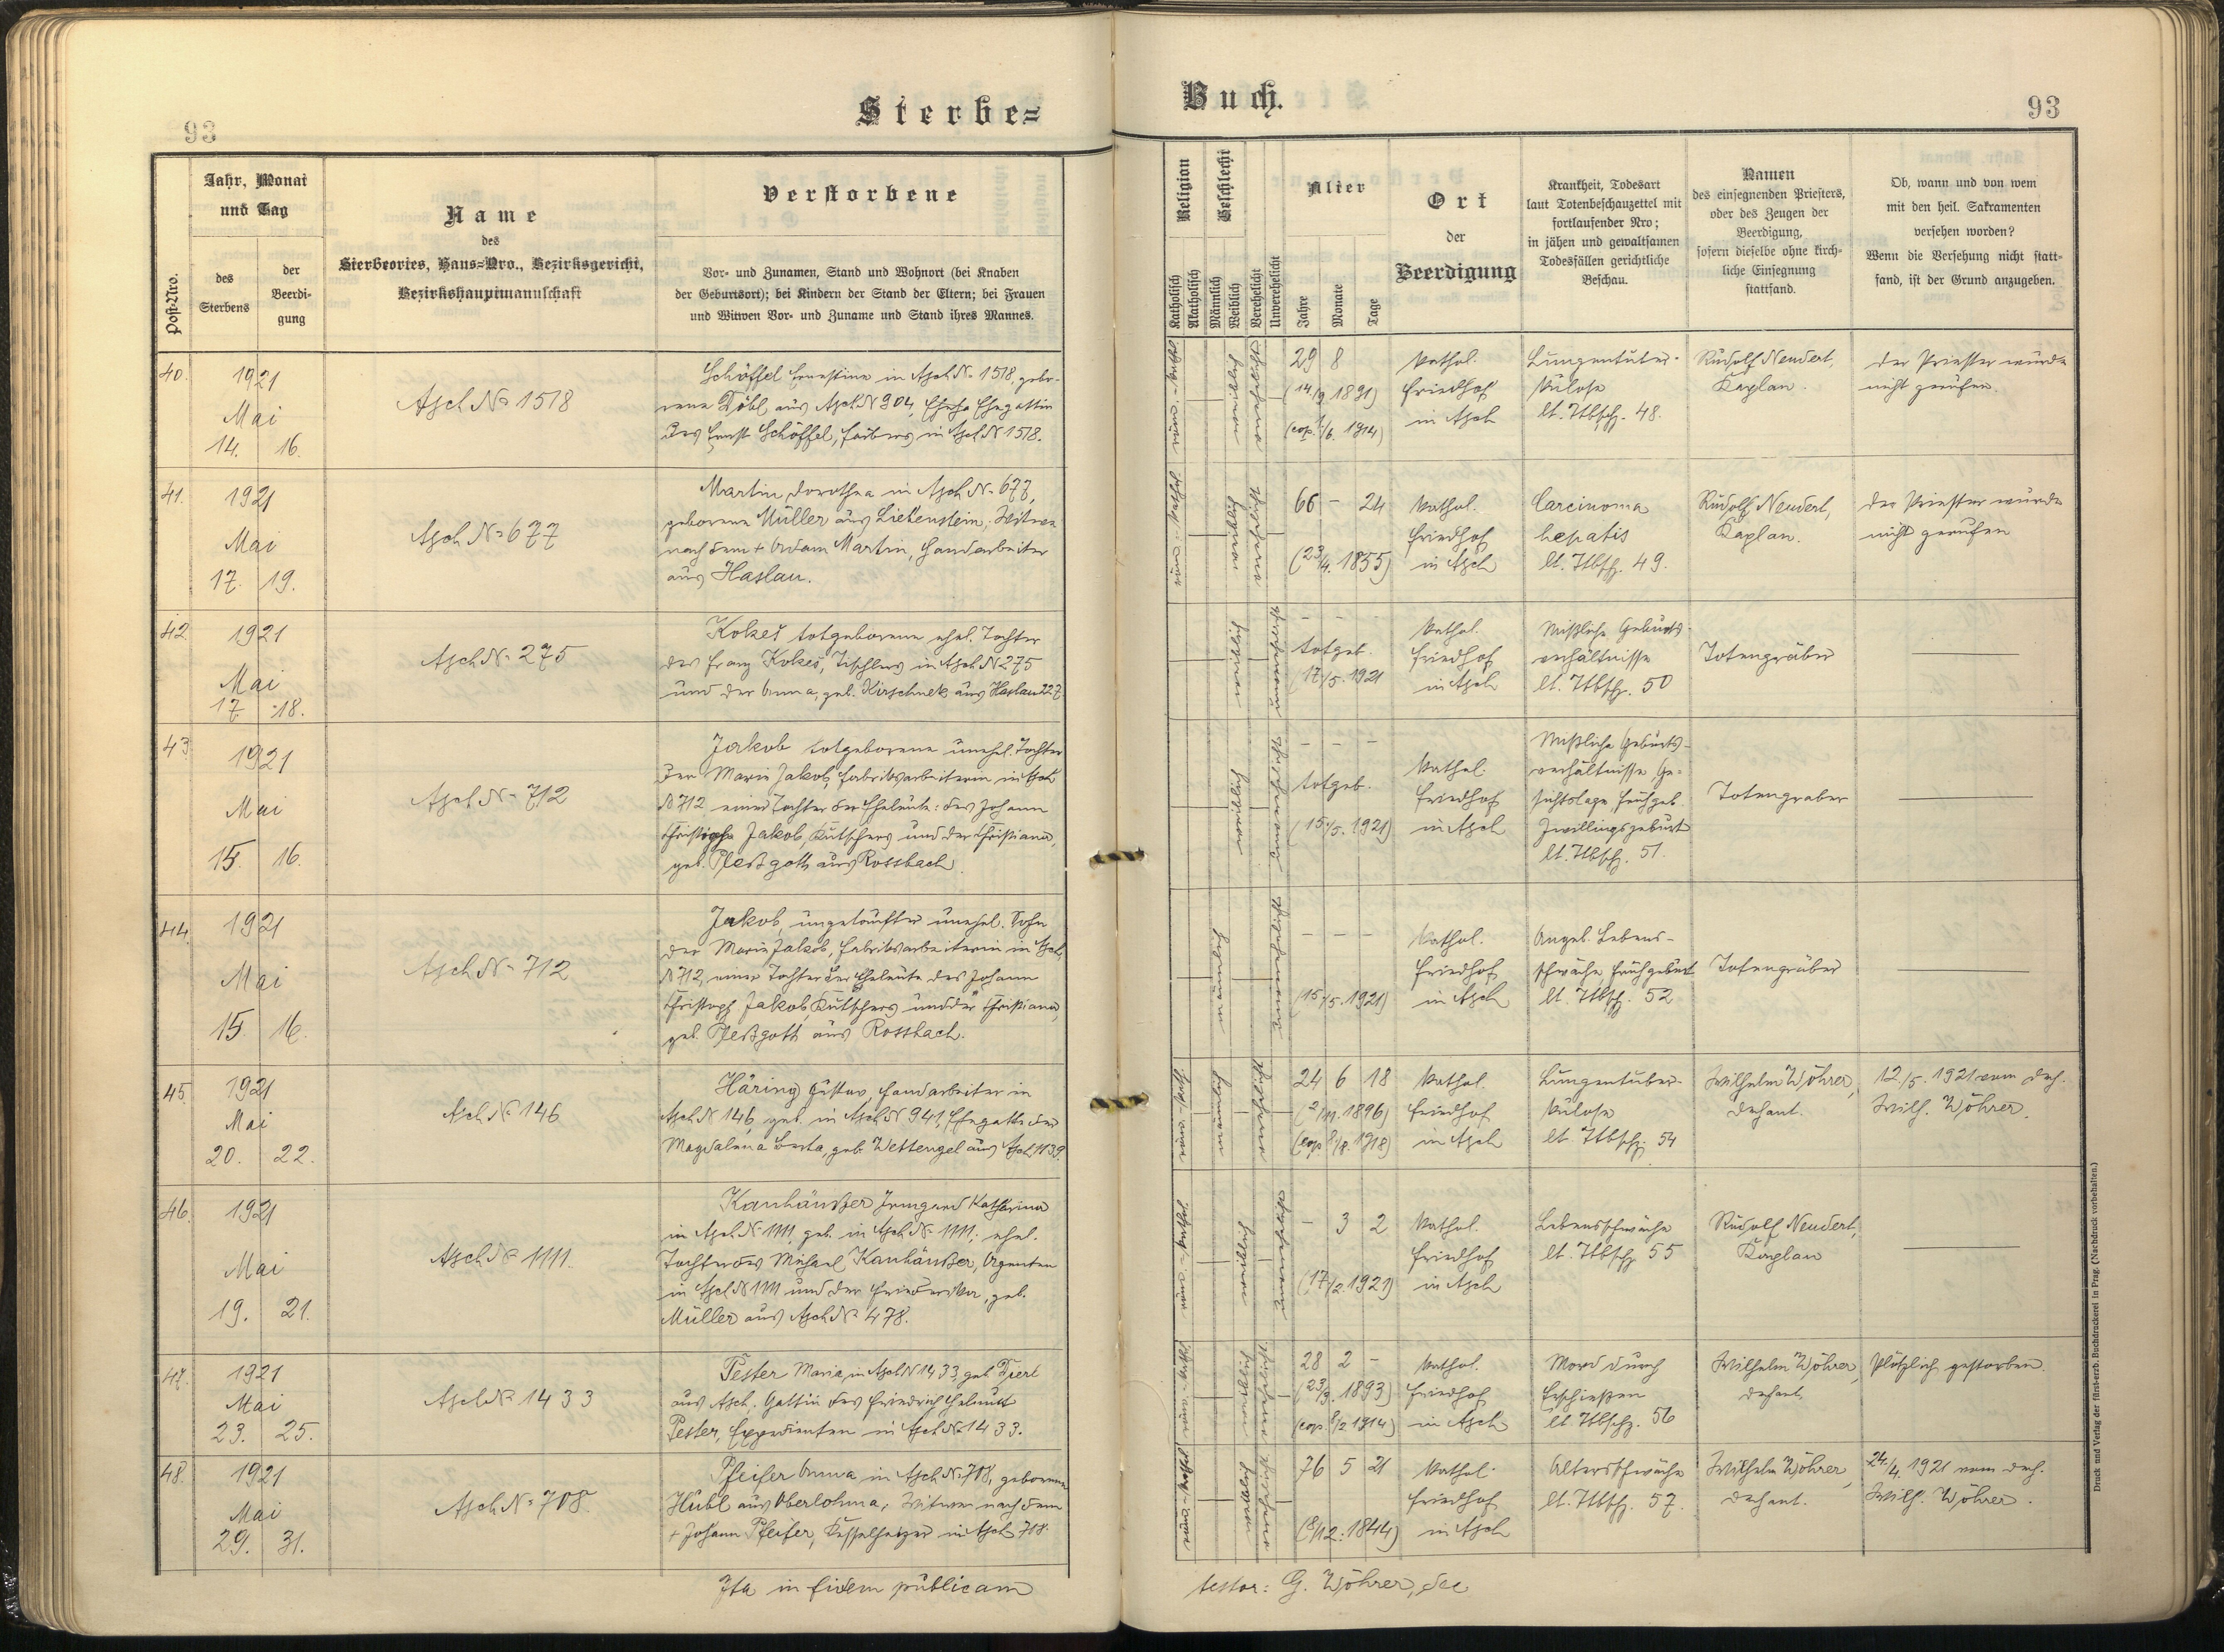 93
Sterbe=
Post-Nro.
Jahr, Monat
und Tag
des
Sterbens
der
Beerdi-
gung
Name
des
Sterbeortes, Haus=Nro., Bezirksgericht,
Bezirkshauptmannschaft
Verstorbene
Vor- und Zunamen, Stand und Wohnort (bei Knaben
der Geburtsort); bei Kindern der Stand der Eltern; bei Frauen
und Witwen Vor- und Zuname und Stand ihres Mannes.
40.
1921
Mai
14. 16.
Asch No 1518
Schöffel Ernestine in Asch No 1518, gebo-
rene Döbl aus Asch N 904, Ehegattin
des Ernst Schöffel, Färbers in Asch N 1518.
41.
1921
Mai
17. 19.
Asch No 677
Martin Dorothea in Asch No 677,
geborene Müller aus Liebenstein, Witwe
nach dem + Adam Martin, Handarbeiter
aus Haslau.
42.
1921
Mai
17. 18.
Asch No 275
Kokeš totgeborene ehel. Tochter
des Franz Kokeš, Tischlers in Asch N 275
und der Anna, geb. Kirschnek aus Haslau 227
43.
1921
Mai
15. 16.
Asch No 712
Jakob totgeborene unehel. Tochter
der Marie Jakob, Fabriksarbeiterin in Asch
N 712 einer Tochter der Eheleute: des Johann
Christoph Jakob, Kutschers und der Christiana,
geb. Pleßgott aus Rossbach.
44.
1921
Mai
15. 16.
Asch No 712
Jakob, ungetaufter unehel. Sohn
der Marie Jakob, Fabriksarbeiterin in Asch
N 712, einer Tochter der Eheleute des Johann
Christoph Jakob, Kutschers und der Christiana,
geb. Pleßgott aus Rossbach.
45.
1921
Mai
20. 22.
Asch No 146
Häring Gustav, Handarbeiter in
Asch N 146, geb. in Asch N 941, Ehegatte der
Magdalena Berta, geb. Wettengel aus Asch N 39.
46.
1921
Mai
19. 21.
Asch No 1111.
Kanhäußer Irmgard Katharina
in Asch No 1111, geb. in Asch No 1111, ehel.
Tochter des Michael Kanhäußer, Agenten
in Asch N 1111 und der Friederika, geb.
Müller aus Asch No 478.
47.
1921
Mai
23. 25.
Asch No 1433
Pester Maria, in Asch N 1433, geb.
aus Asch, Gattin des Friedrich Helmut
Pester, Expedienten in Asch No 1433.
48.
1921
Mai
29. 31.
Asch No 708.
Pfeifer Anna in Asch No 708, geborene
Hübl aus Oberlohma, Witwe nach dem
+ Johann Pfeifer, Kesselheizer in Asch 718.
Ita in fidem publicam
Buch.
93
Religion
Katholisch
Akatholisch
Geschlecht
Männlich
Weiblich
Verehelicht
Unverehelicht
Alter
Jahre
Monate
Tage
Ort
der
Beerdigung
Krankheit, Todesart
laut Totenbeschauzettel mit
fortlaufender Nro;
in jähen und gewaltsamen
Todesfällen gerichtliche
Beschau.
Namen
des einsegnenden Priesters,
oder des Zeugen der
Beerdigung,
sofern dieselbe ohne kirch-
liche Einsegnung
stattfand.
Ob, wann und von wem
mit den heil. Sakramenten
versehen worden?
Wenn die Versehung nicht statt-
fand, ist der Grund anzugeben.
29 8
(14./9. 1891)
(cop. /6. 1914)
kathol.
Friedhof
in Asch
Lungentuber-
kulose
lt. Ttbsch. 48.
Rudolf Neudert,
Kaplan.
Der Priester wurde
nicht gerufen.
66 - 24
(23/4. 1855)
kathol.
Friedhof
in Asch
Carcinoma
hepatis
lt. Ttbsch. 49.
Rudolf Neudert,
Kaplan.
Der Priester wurde
nicht gerufen
- - -
totgeb.
(17/5. 1921
kathol.
Friedhof
in Asch
Mißliche Geburts-
verhältnisse
lt. Ttbsch. 50
Totengräber
- - -
totgeb.
(15./5. 1921)
kathol.
Friedhof
in Asch
Mißliche Geburts-
verhältnisse, Ge-
sichtslage, Frühgeb.
Zwillingsgeburt
lt. Ttbsch. 51.
Totengräber
- - -
(15/5. 1921)
kathol.
Friedhof
in Asch
Angeb. Lebens-
schwäche Frühgeburt
lt. Ttbsch. 52
Totengräber
24 6 18
(2/11. 1896)
(cop. 1918)
kathol.
Friedhof
in Asch
Lungentuber-
kulose
lt. Ttbsch. 54
Wilhelm Wöhrer,
Dechant.
12./5. 1921 vom Dech.
Wilh. Wöhrer.
- 3 2
(17/2. 1921)
kathol.
Friedhof
in Asch
Lebensschwäche
lt. Ttbsch. 55
Rudolf Neudert,
Kaplan
28 2 -
(23/3. 1893)
(cop. /2 1914)
kathol.
Friedhof
in Asch
Mord durch
Erschießen
lt. Ttbsch. 56
Wilhelm Wöhrer,
Dechant.
Plötzlich gestorben.
76 5 21
(8/12. 1844)
kathol.
Friedhof
in Asch
Altersschwäche
lt. Ttbsch. 57.
Wilhelm Wöhrer,
Dechant.
24./4. 1921 vom Dech.
Wilh. Wöhrer.
testor: G. Wöhrer, Dec
Druck und Verlag der fürst-erzb. Buchdruckerei in Prag. (Nachdruck vorbehalten.)